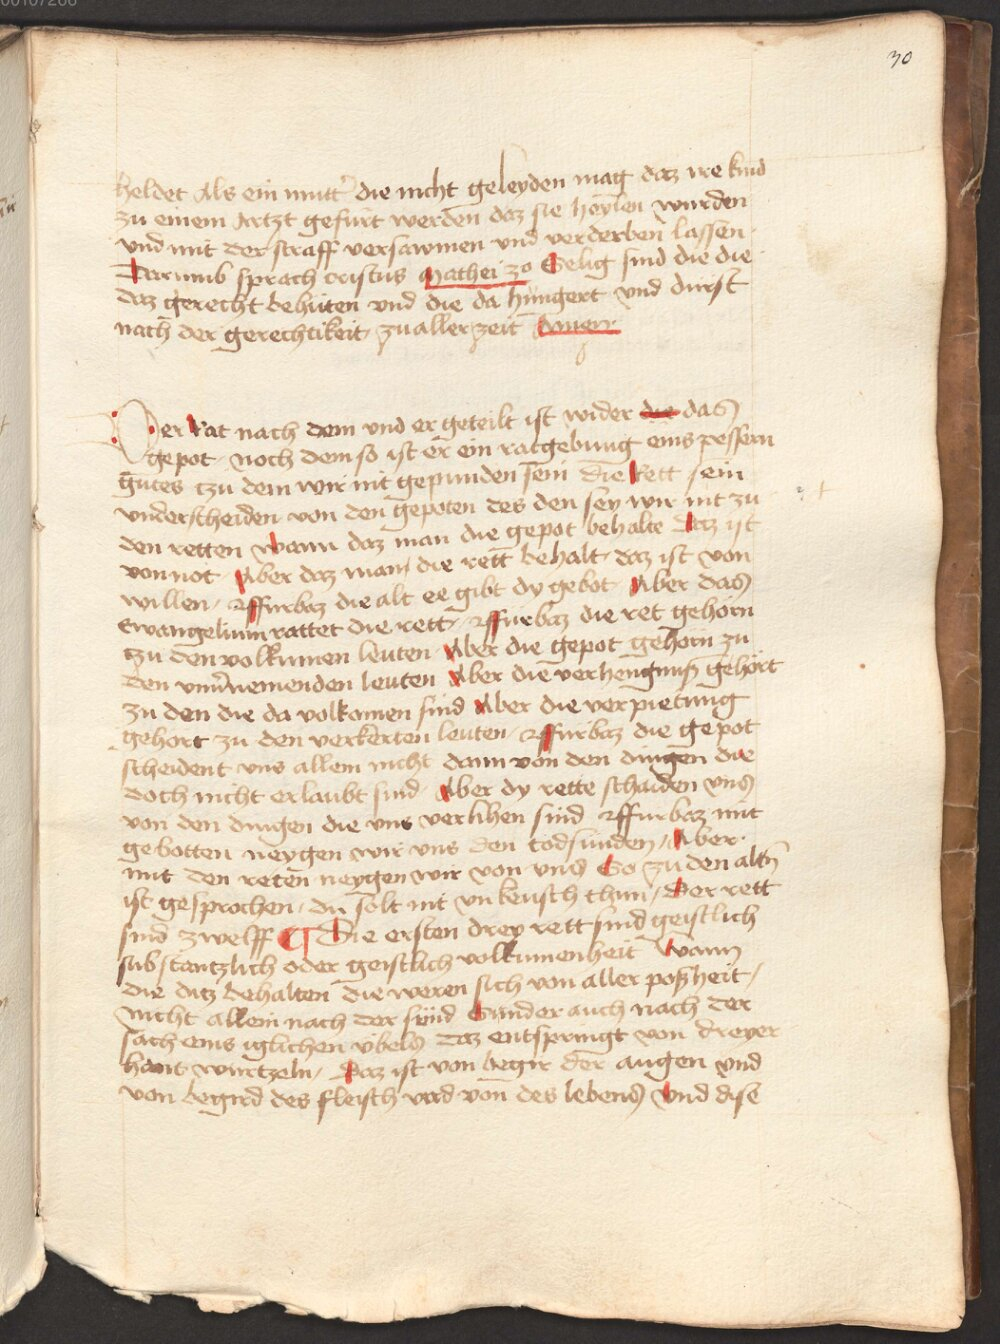 30
heldet Als ein mutter die nicht geleyden mag daz ire kind
zu einem Artzt gefurt werden daz sie heylen wurden
vnd mit der straff versawmen vnd verderben lassen
Darumb sprach cristus Mathei 30 Selig sind die die
daz gerecht behüten vnd die da hungert vnd dürst
nach der gerechtikeit zu aller zeit Amen
Der Rat nach dem vnd er geteilt ist wider die das
gepot noch dem so ist er ein ratgebung eins pessern
gutes tzu dem wir nit gepunden sein die Rett sein
vnderscheiden von den gepoten des den sey wir nit zu
den retten Wann daz man die gepot behalte Daz ist
von not Aber daz man die rett behalt daz ist von
willen / ffurbaz die alt ee gibt dy gebot Aber das
Ewangelium rattet die rett / ffürbaz die ret gehorn
tzu den volkumen leuten Aber die gepot gehorn zu
den leuten Aber die verhengnuß gehört
zu den die da volkomen sind Aber die verpietung
gehort zu den verkerten leuten / ffurbaz die gepot
scheident vns allein nicht dann von den dingen die
doch nicht erlaubt sind Aber dy rette schaiden vns
von den dingen die vns verlihen sind ffurbaz mit
gebotten neygen wir vns den todsunden / Aber
mit den reten neygen wir von vns So zu den altn
ist gesprochen / du solt nit vnkeusch thun / Der rett
sind zwelff ¶ Die ersten drey rett sind geistlich
substantzlich oder geistlich volkumenheit Wann
die ditz behalten die weren sich von aller poßheit /
nicht allein nach der sünd Sunder auch nach der
sach eins iglichen vbels Daz entspringt von dreyer
hant wurtzeln / Daz ist von begir der augen vnd
von begird des fleisch vnd von des lebens Vnd dise